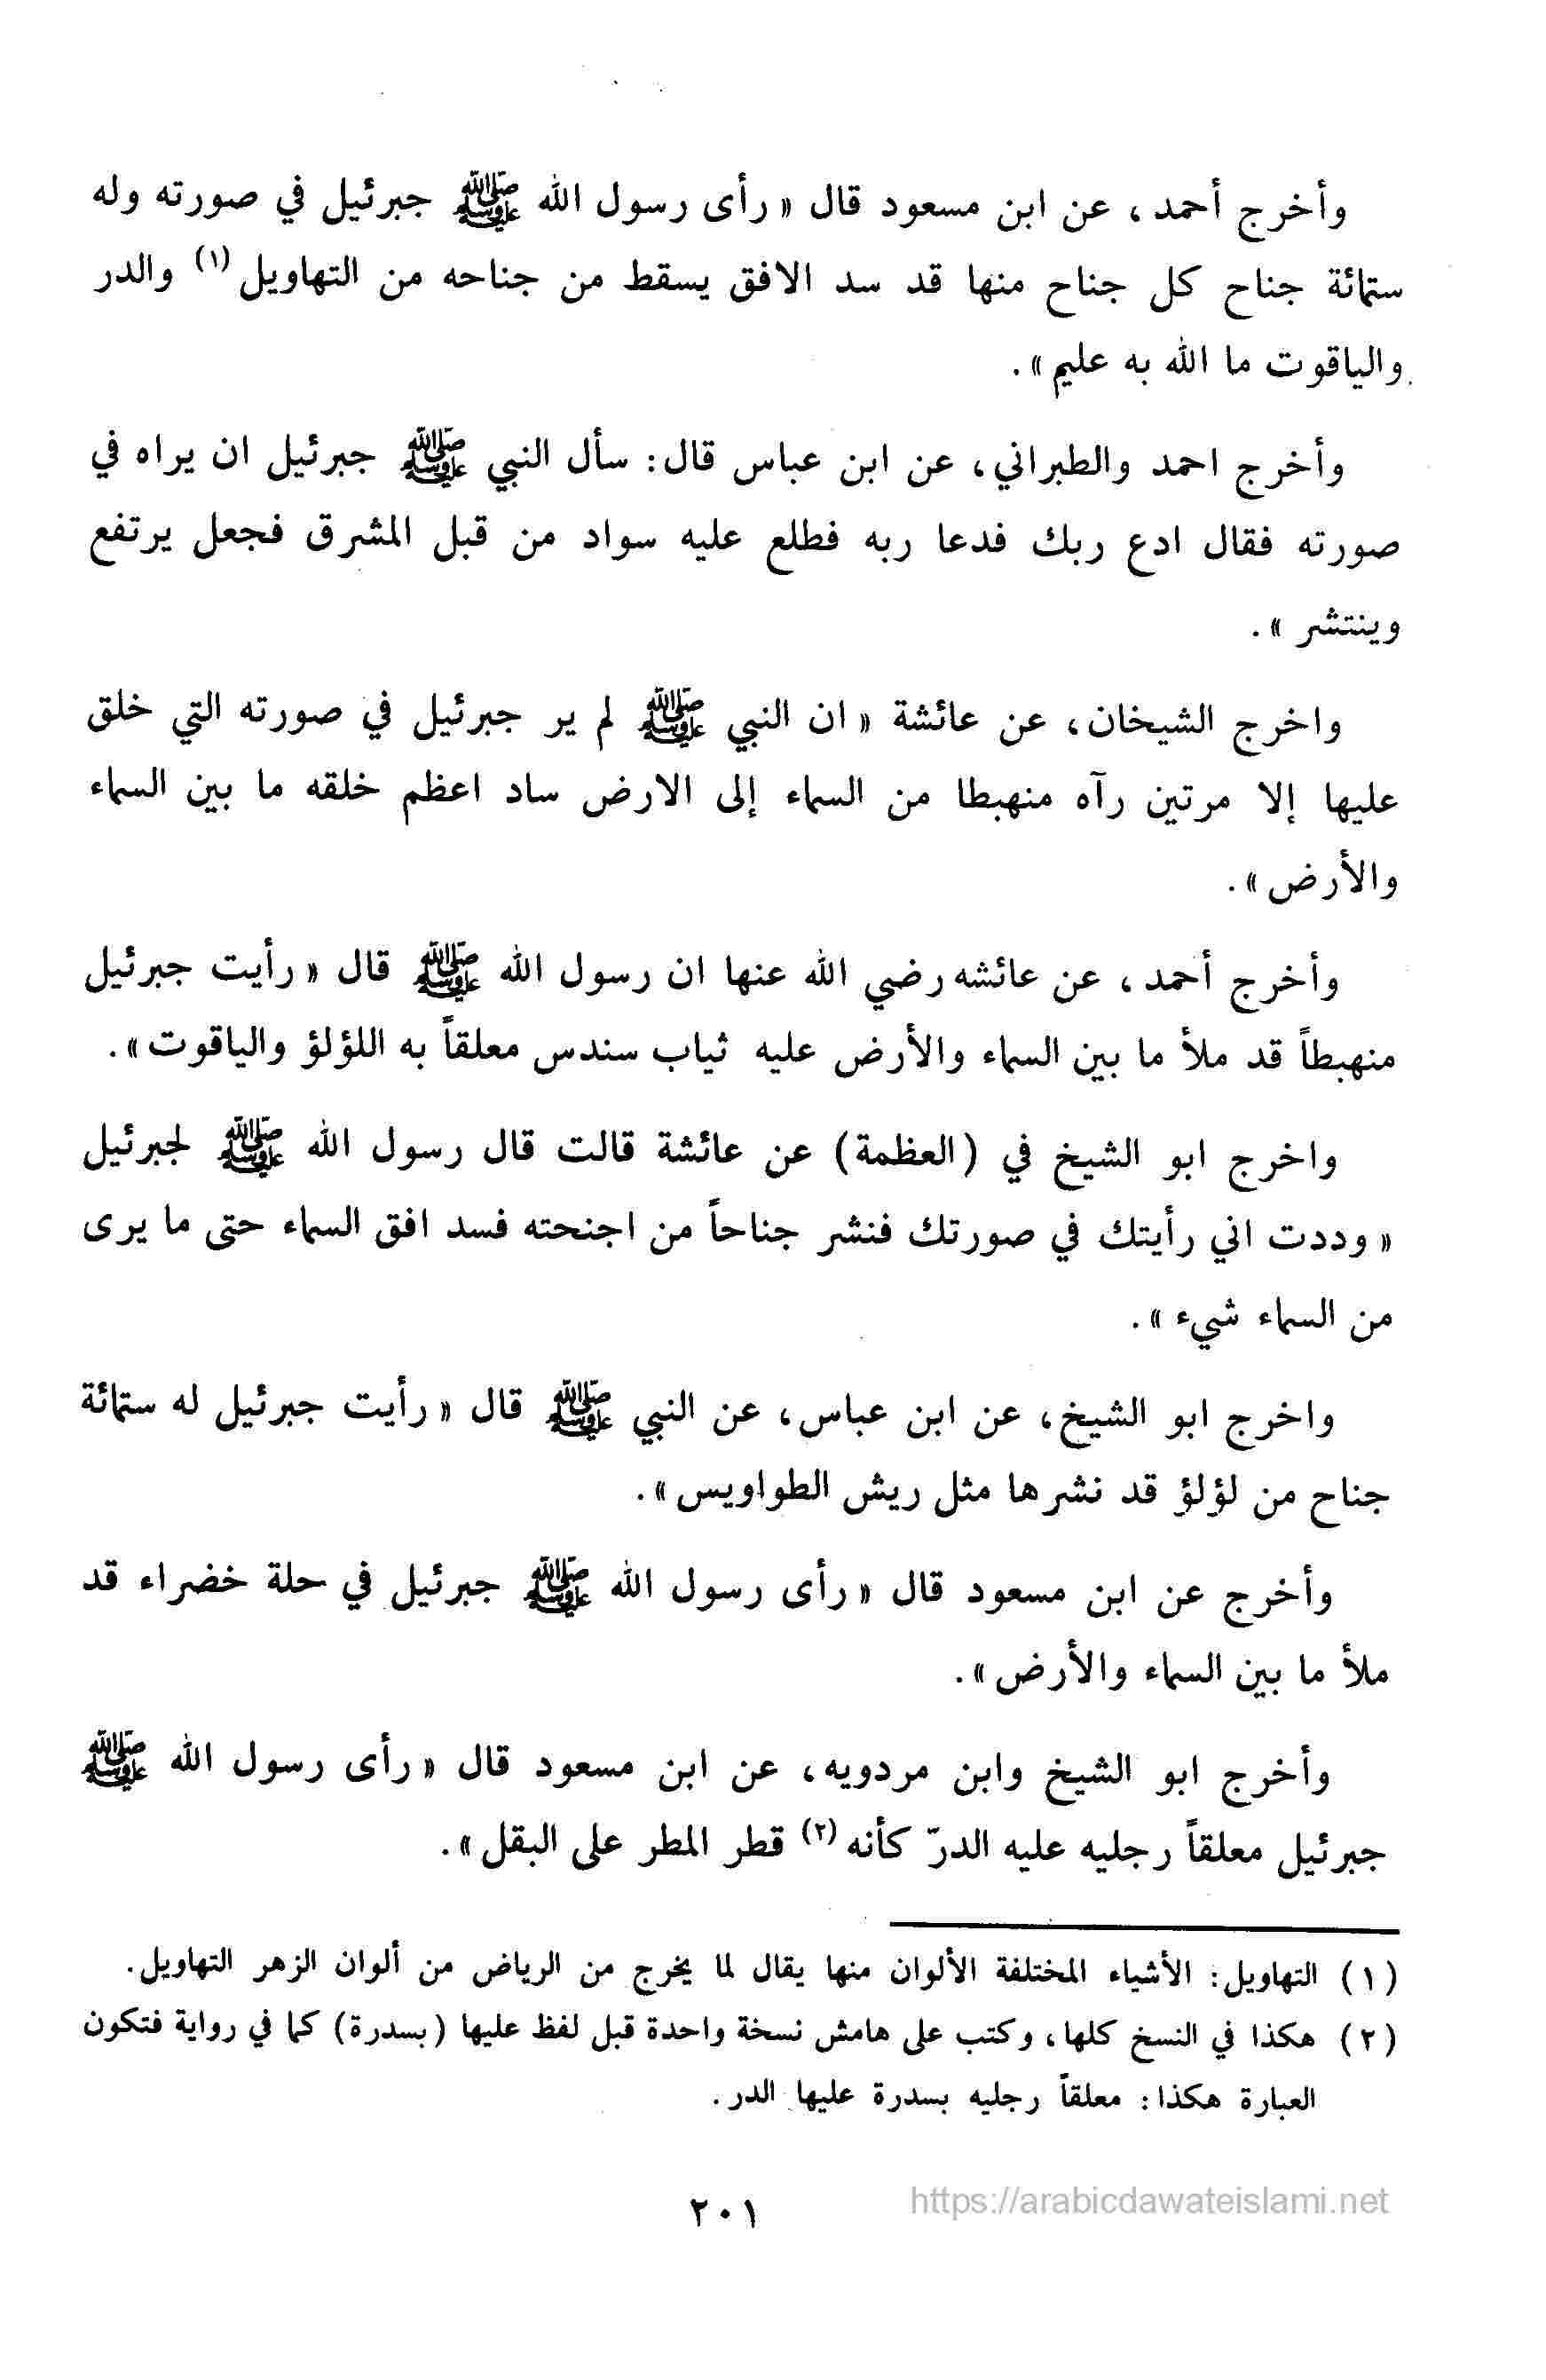 وأخرج أحمد ، عن ابن مسعود قال « رأى رسول الله ﷺ جبرئيل في صورته وله
ستمائة جناح كل جناح منها قد سد الافق يسقط من جناحه من التهاويل (١) والدر
والياقوت ما الله به عليم » .
وأخرج احمد والطبراني ، عن ابن عباس قال : سأل النبي ﷺ جبرئيل ان يراه في
صورته فقال ادع ربك فدعا ربه فطلع عليه سواد من قبل المشرق فجعل يرتفع
وينتشر » .
واخرج الشيخان ، عن عائشة « ان النبي ﷺ لم ير جبرئيل في صورته التي خلق
عليها إلا مرتين رآه منهبطا من السماء إلى الارض ساد اعظم خلقه ما بين السماء
والأرض » .
وأخرج أحمد ، عن عائشه رضي الله عنها ان رسول الله ﷺ قال « رأيت جبرئيل
منهبطاً قد ملأ ما بين السماء والأرض عليه ثياب سندس معلقاً به اللؤلؤ والياقوت » .
واخرج ابو الشيخ في (العظمة) عن عائشة قالت قال رسول الله ﷺ لجبرئيل
« وددت اني رأيتك في صورتك فنشر جناحاً من اجنحته فسد افق السماء حتى ما يرى
من السماء شيء » .
واخرج ابو الشيخ ، عن ابن عباس ، عن النبي ﷺ قال « رأيت جبرئيل له ستمائة
جناح من لؤلؤ قد نشرها مثل ريش الطواويس » .
وأخرج عن ابن مسعود قال « رأى رسول الله ﷺ جبرئيل في حلة خضراء قد
ملأ ما بين السماء والأرض » .
وأخرج ابو الشيخ وابن مردويه ، عن ابن مسعود قال « رأى رسول الله ﷺ
جبرئيل معلقاً رجليه عليه الدرّ كأنه (٢) قطر المطر على البقل » .
(١) التهاويل : الأشياء المختلفة الألوان منها يقال لما يخرج من الرياض من ألوان الزهر التهاويل .
(٢) هكذا في النسخ كلها ، وكتب على هامش نسخة واحدة قبل لفظ عليها (بسدرة) كما في رواية فتكون
العبارة هكذا : معلقاً رجليه بسدرة عليها الدر .
٢٠١
https://arabicdawateislami.net